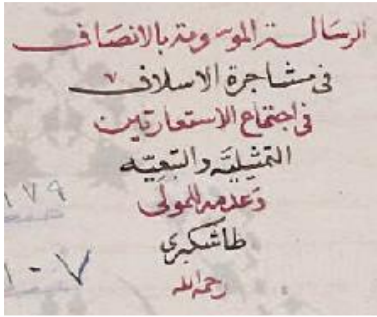 الرسالة الموسومة بالانصاف
فى مشاجرة الاسلاف
فى اجتماع الاستعارتين
التمثيلية والتبعيّه
وعدمه للمولى
طاشكبرى
رحمه الله
١٧٩
١٠٧